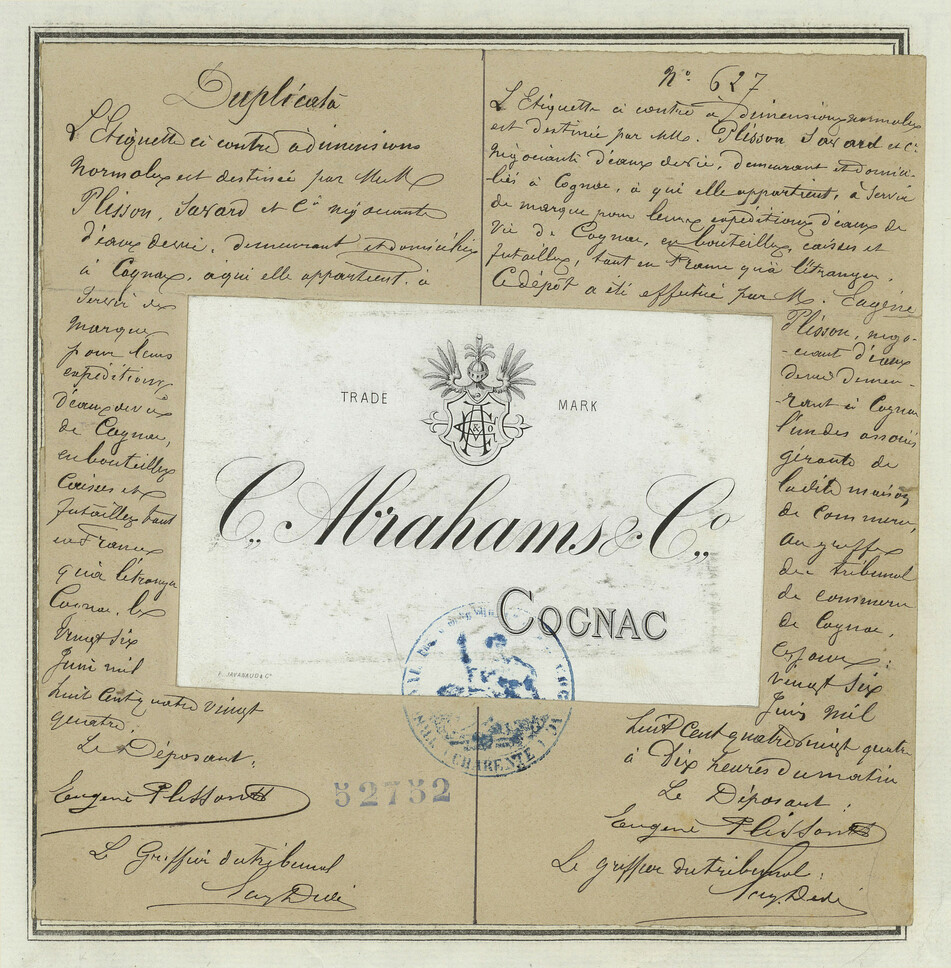 Duplicata
L'Etiquette ci contre à dimensions
normales est destinée par MM
Plisson, Savard et Cie négociants
d'eaux de vie, demeurant et domiciliés
à Cognac, à qui elle appartient, à
servir de
marque
pour leurs
expéditions
d'eaux de vie
de Cognac,
en bouteilles
Caisses et
futailles tant
en France
qu'à l'étranger
Cognac, le
vingt six
Juin mil
huit cent quatre vingt
quatre.
Le Déposant,
Eugène Plisson
Le Greffier du tribunal
52752
No 627
L'Etiquette ci contre à dimensions normales
est destinée par MM. Plisson Savard et Cie
négociants d'eaux de vie, demeurant et domici-
liés à Cognac, à qui elle appartient, à servir
de marque pour leurs expéditions d'eaux de
vie de Cognac, en bouteilles, caisses et
futailles, tant en France qu'à l'étranger.
Ce dépôt a été effectué par M. Eugène
Plisson, négo-
-ciant d'eaux
de vie demeu-
-rant à Cognac
l'un des associés
gérants de
ladite maison
de commerce,
au greffe
du tribunal
de commerce
de Cognac,
ce jour :
vingt six
Juin mil
huit cent quatre vingt quatre
à Dix heures du matin
Le Déposant :
Eugène Plisson
Le greffier du tribunal :
TRADE MARK
C. Abrahams & Co.
COGNAC
CHARENTE